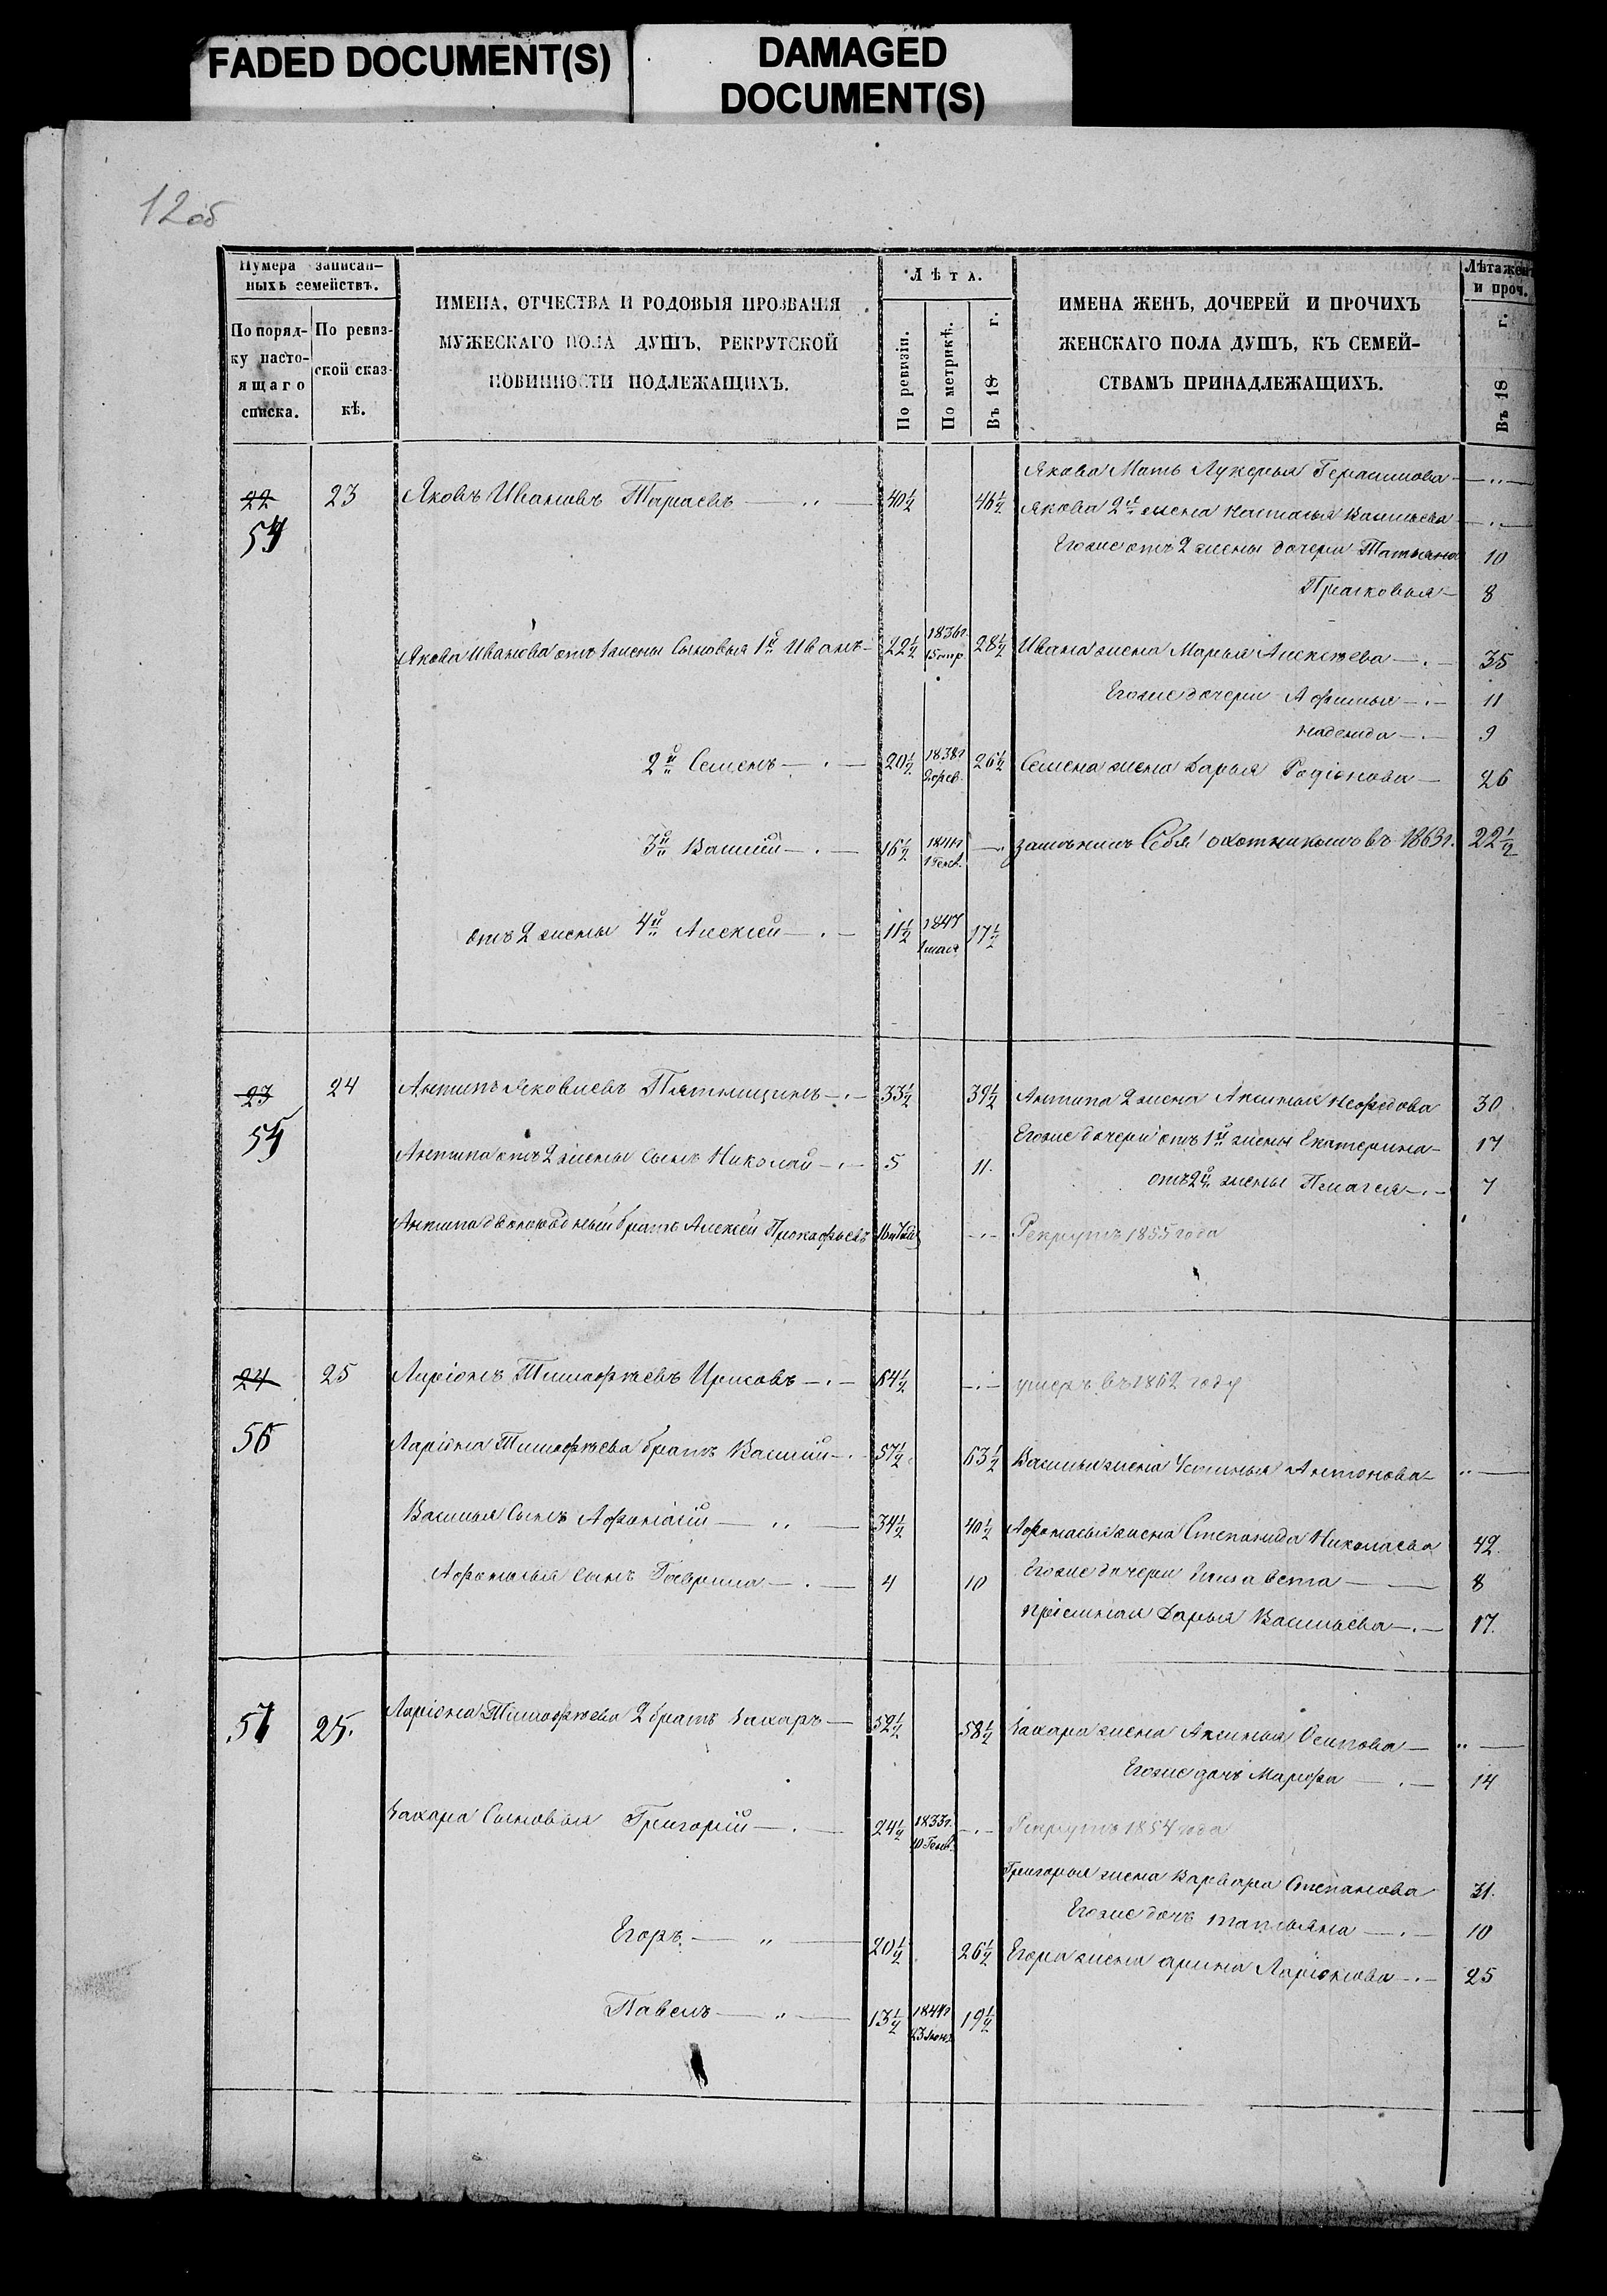 FADED DOCUMENT(S)
DAMAGED
DOCUMENT(S)
12об
Нумера записан-
ныхъ семействъ.
По поряд-
ку насто-
ящаго
списка.
По ревиз-
ской сказ-
кѣ.
ИМЕНА, ОТЧЕСТВА И РОДОВЫЯ ПРОЗВАНІЯ
МУЖЕСКАГО ПОЛА ДУШЪ, РЕКРУТСКОЙ
ПОВИННОСТИ ПОДЛЕЖАЩИХЪ.
Лѣта.
По ревизіи.
По метрикѣ.
Въ 18 г.
ИМЕНА ЖЕНЪ, ДОЧЕРЕЙ И ПРОЧИХЪ
ЖЕНСКАГО ПОЛА ДУШЪ, КЪ СЕМЕЙ-
СТВАМЪ ПРИНАДЛЕЖАЩИХЪ.
Лѣта жен
и проч.
Въ 18 г.
Якова Мать Лукерья Герасимова — „ —
22 23 Яковъ Ивановъ Тараевъ — „ — 40½ 46½ Якова 2й жена Настасья Васильева — „ —
54
Егоже отъ 2 жены дочери Татьяна 10
Прасковья — 8
Якова Иванова отъ 1 жены Сыновья 1й Иванъ — 22½ 1836г. 28½ Ивана жена Марья Алексѣева — . — 35
Егоже дочери Афимья — . — 11
Надежда — . — 9
2й Семенъ — . — 20½ 1838г 26½ Семена жена Дарья Родіонова — 26
3й Василій — . — 16½ 1 Генв. — . замѣнилъ Себя охотникомъ въ 1863г. 22½
отъ 2 жены 4й Алексѣй — . — 11½ 1847 1 мая 17½
23 24 Антипъ Яковлевъ Пятницинъ — . — 33½ 39½ Антипа 2 жена Аксинья 30
55
Егоже дочери отъ 1й жены Екатерина — 17
Антипа отъ 2 жены сынъ Николай — . — 5 11.
отъ 2й жены Пелагея — . — 7
Антипа двоюродный братъ Алексѣй Прокофьевъ — . — Рекрутъ 1855 года
24 25 Ларіонъ Тимофѣевъ — . — 64½ — . — умеръ въ 1862 году
56
Ларіона Тимофѣева братъ Василій — . 57½ 63½ Василья жена Устинья Антонова — „ —
Василья Сынъ Афонасій — „ — 34½ 40½ Афонасья жена Степанида Николаева 42.
Афонасья сынъ Гаврила — . — 4 10 Егоже дочери Елизавета — — 8
пріемная Дарья Васильева — . — 17.
57 25. Ларіона Тимофѣева 2 братъ Захаръ — 52½ 58½ Захара жена Аксинья Осипова — „ —
Егоже дочь Марфа — . — 14
Захара Сыновья Григорій — . — 24½ 1833г. 10 Генв. — . — Рекрутъ 1854 года
Григорья жена Варвара Степанова 31.
Егоже дочь татьяна — . — 10
Егоръ — „ — 20½ 26½ Егора жена арина Ларіонова — . — 25
Павелъ — „ — 13½ 19½